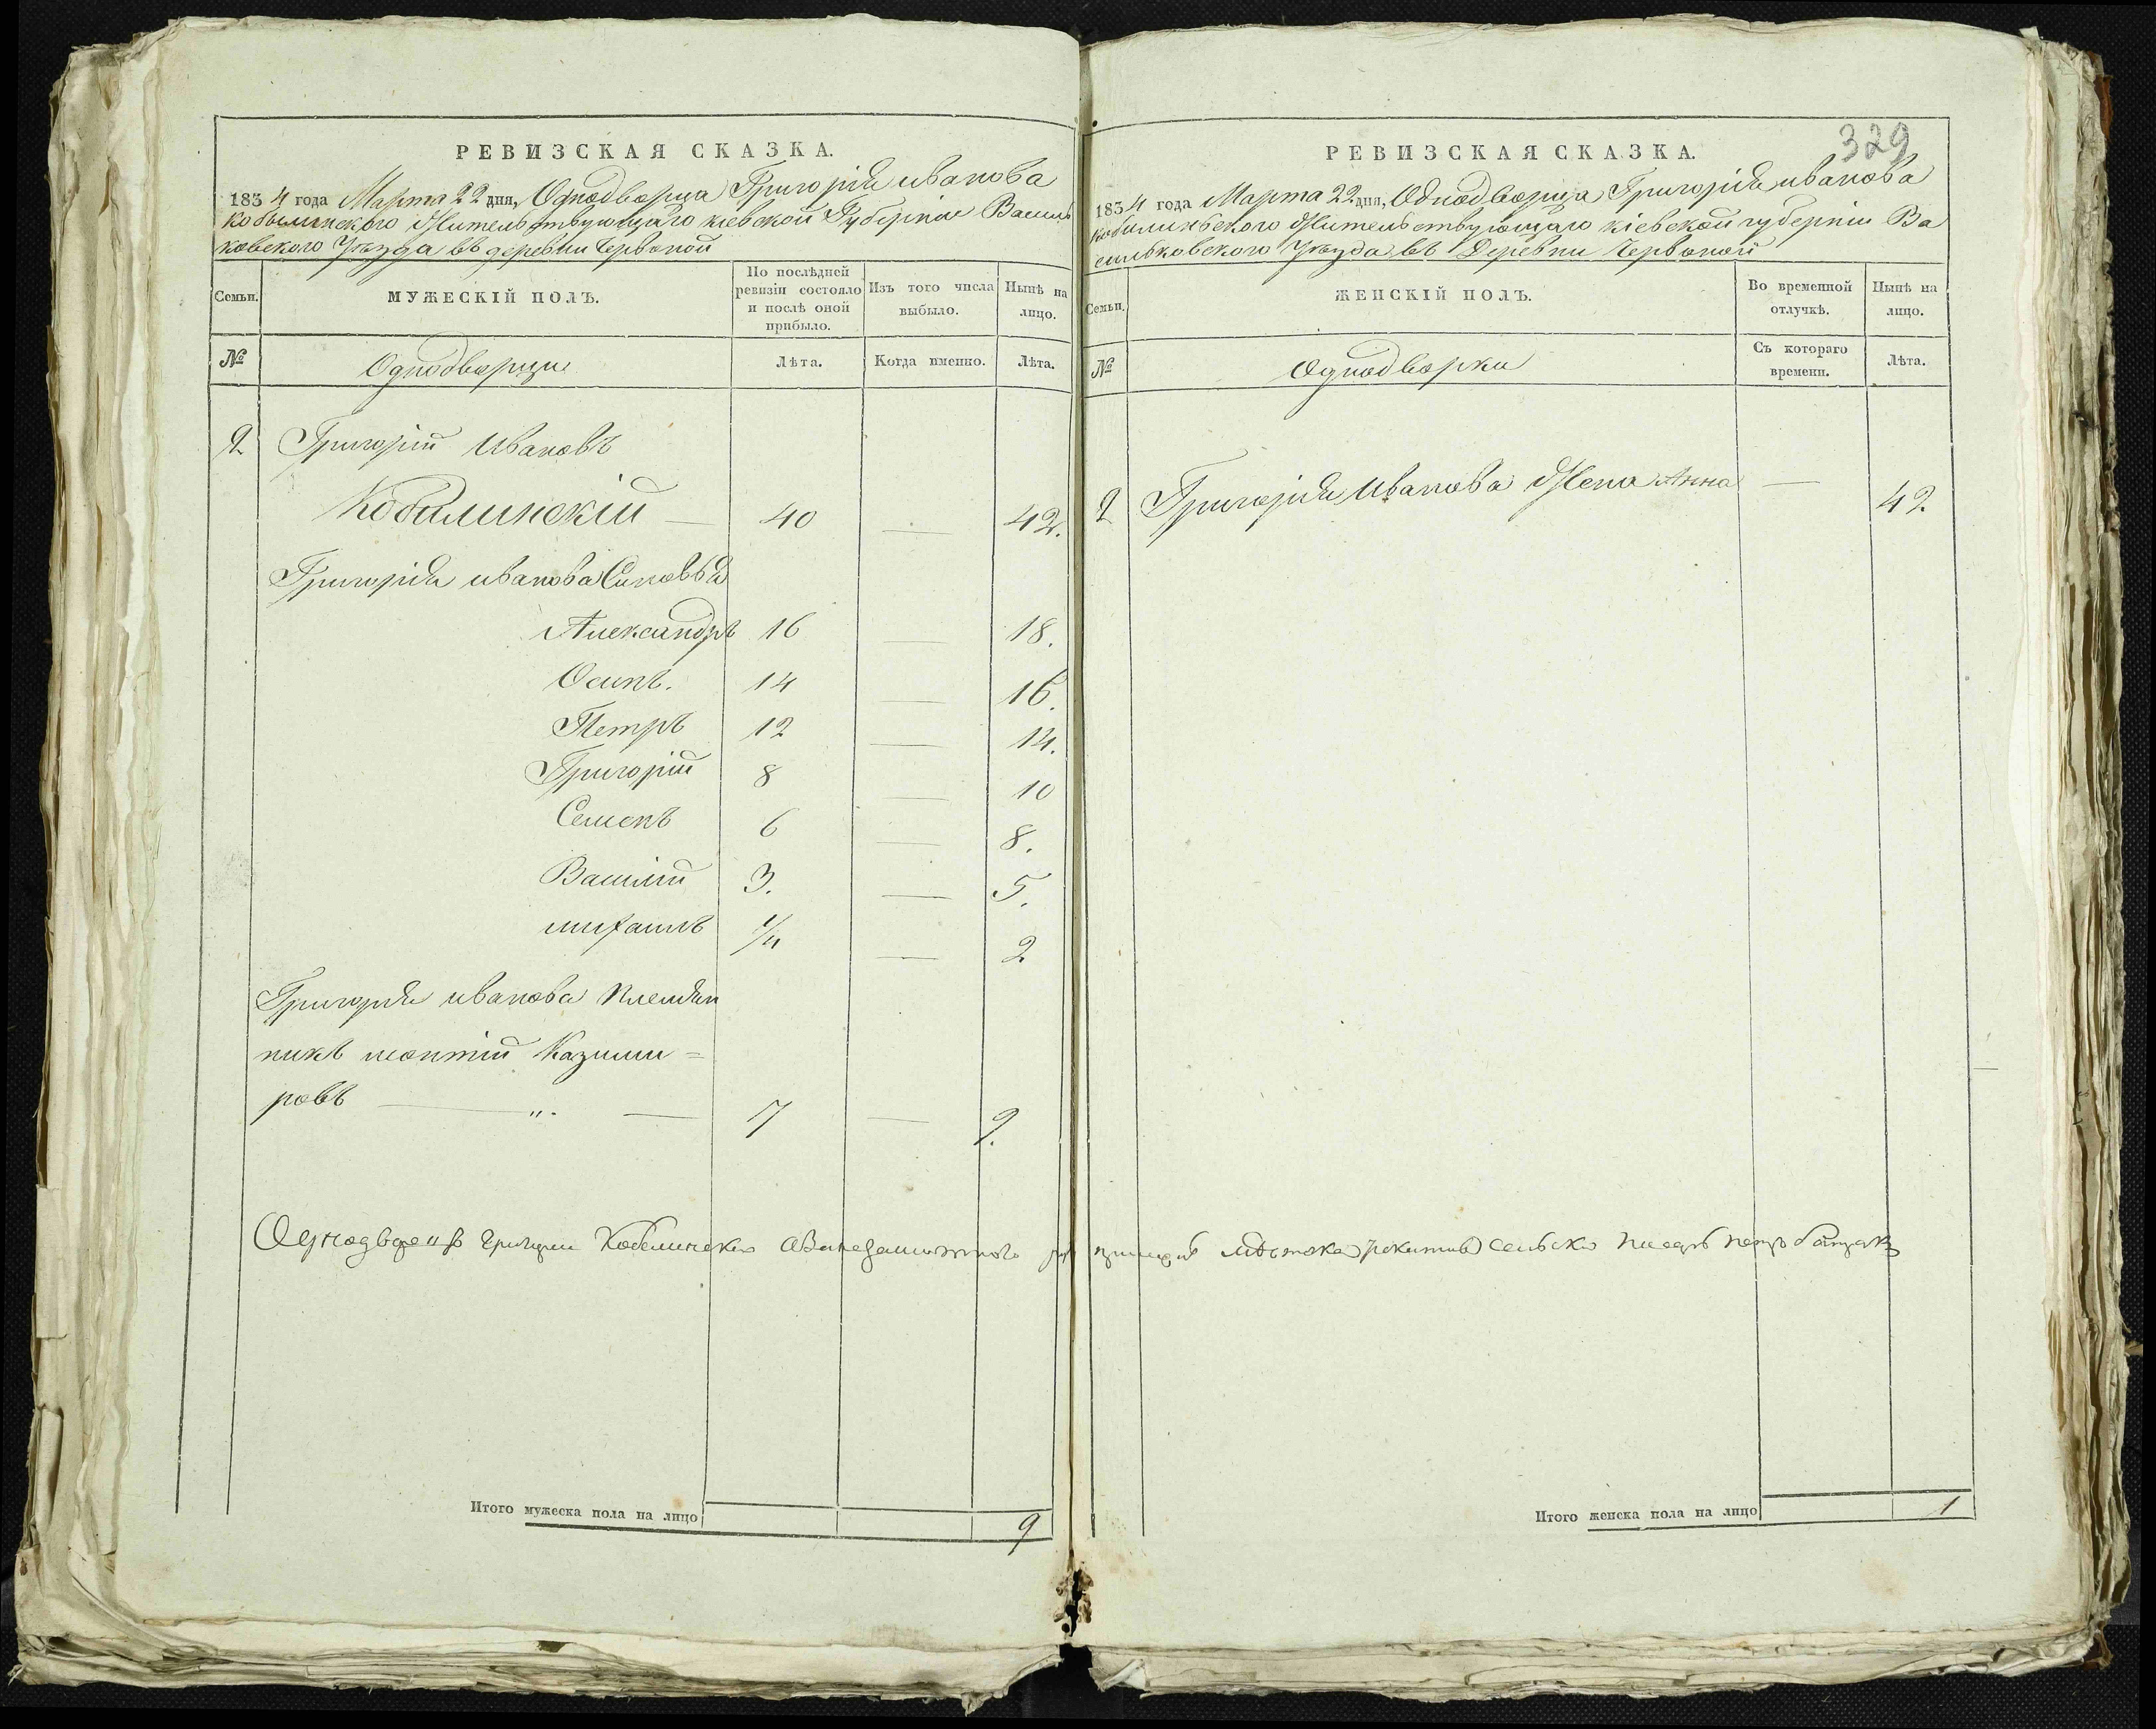 РЕВИЗСКАЯ СКАЗКА.
1834 года Марта 22 дня, Однодворца Григорія иванова
Кобылинского Жительствующаго кіевской Губерніи Василь
ковского Уѣзда въ деревни Червоной
Семьи.
МУЖЕСКІЙ ПОЛЪ.
По послѣдней ревизіи состояло и послѣ оной прибыло.
Изъ того числа выбыло.
Нынѣ на лицо.
№
Однодворци
Лѣта.
Когда именно.
Лѣта.
2 Григорій Ивановъ
Кобилинскій — 40 — 42.
Григорія иванова Синовья
Александръ 16 — 18.
Осипъ. 14 — 16.
Петръ 12 — 14.
Григорій 8 — 10
Семенъ 6 — 8.
Василій 3. — 5.
михаилъ 1/4 — 2
Григорія иванова племян
никъ леонтій Казими=
ровъ — „. — 7 — 9.
Итого мужеска пола на лицо 9
329
РЕВИЗСКАЯ СКАЗКА.
1834 года Марта 22 дня, Однодворца Григорія иванова
Кобилиньского Жительствующаго кіевской губерніи Ва
сильковского Уѣзда въ Деревни Червоной
Семьи.
ЖЕНСКІЙ ПОЛЪ.
Во временной отлучкѣ.
Нынѣ на лицо.
№
Однодворки
Съ котораго времени.
Лѣта.
2 Григорія Иванова Жена Анна — 42.
Итого женска пола на лицо 1
Однодворецъ Григории Кобелинскии а вместо неграмотного мѣстечка рокитна селъски писаръ петръ